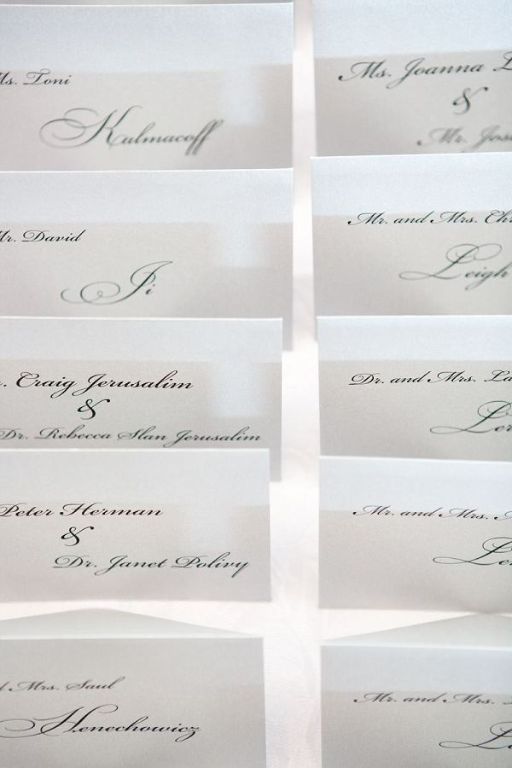 Ms. Toni
Kulmacoff
Mr. David
Ji
Craig Jerusalim
&
Dr. Rebecca Slan Jerusalim
Peter Herman
&
Dr. Janet Polivy
Mrs. Saul
Henechowicz
Ms. Joanna
&
Mr.
Mr. and Mrs.
Leigh
Dr. and Mrs.
Mr. and Mrs.
Mr. and Mrs.